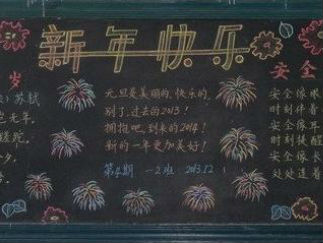 新年快乐
岁
苏轼
元旦是美丽的、快乐的,
别了,过去的2013!
拥抱吧,到来的2014!
新的一年更加美好!
第4期 一2班 2013.12
安全
安全像眼
时刻伴着
安全像耳
时刻提醒
安全像长
处处连着